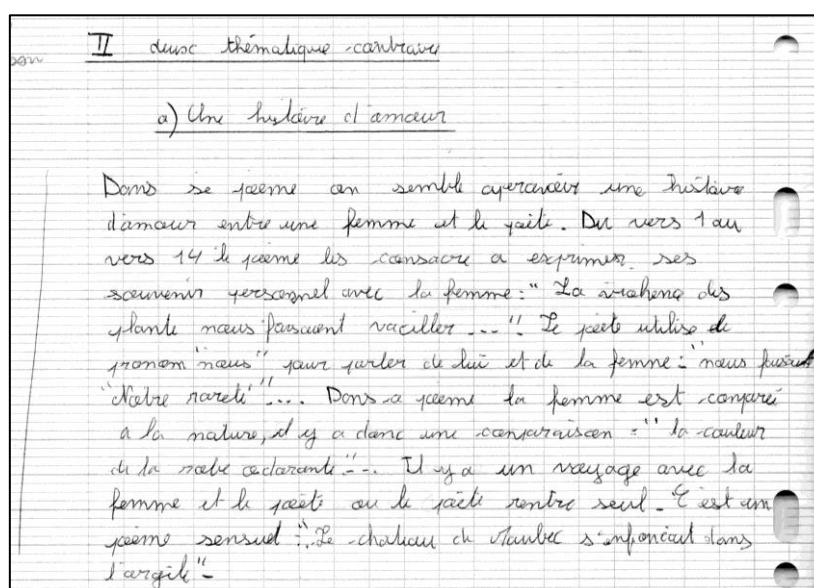 II deux thématique contraire
son
a) Une histoire d'amour
Dans se poème on semble apercevoir une histoire
d'amour entre une femme et le poète. Du vers 1 au
vers 14 le poème les consacre a exprimer ses
souvenir personnel avec la femme : " La violence des
plante nous faisaient vaciller ... ". Le poète utilise le
pronom "nous" pour parler de lui et de la femme : "nous
"Notre rareté" ... Dans ce poème la femme est comparé
a la nature, il y a donc une comparaison : " la couleur
de la robe odorante " ... Il y a un voyage avec la
femme et le poète ou le poète rentre seul. C'est un
poème sensuel : "Le chateau de Maubec s'enfoncait dans
l'argile".